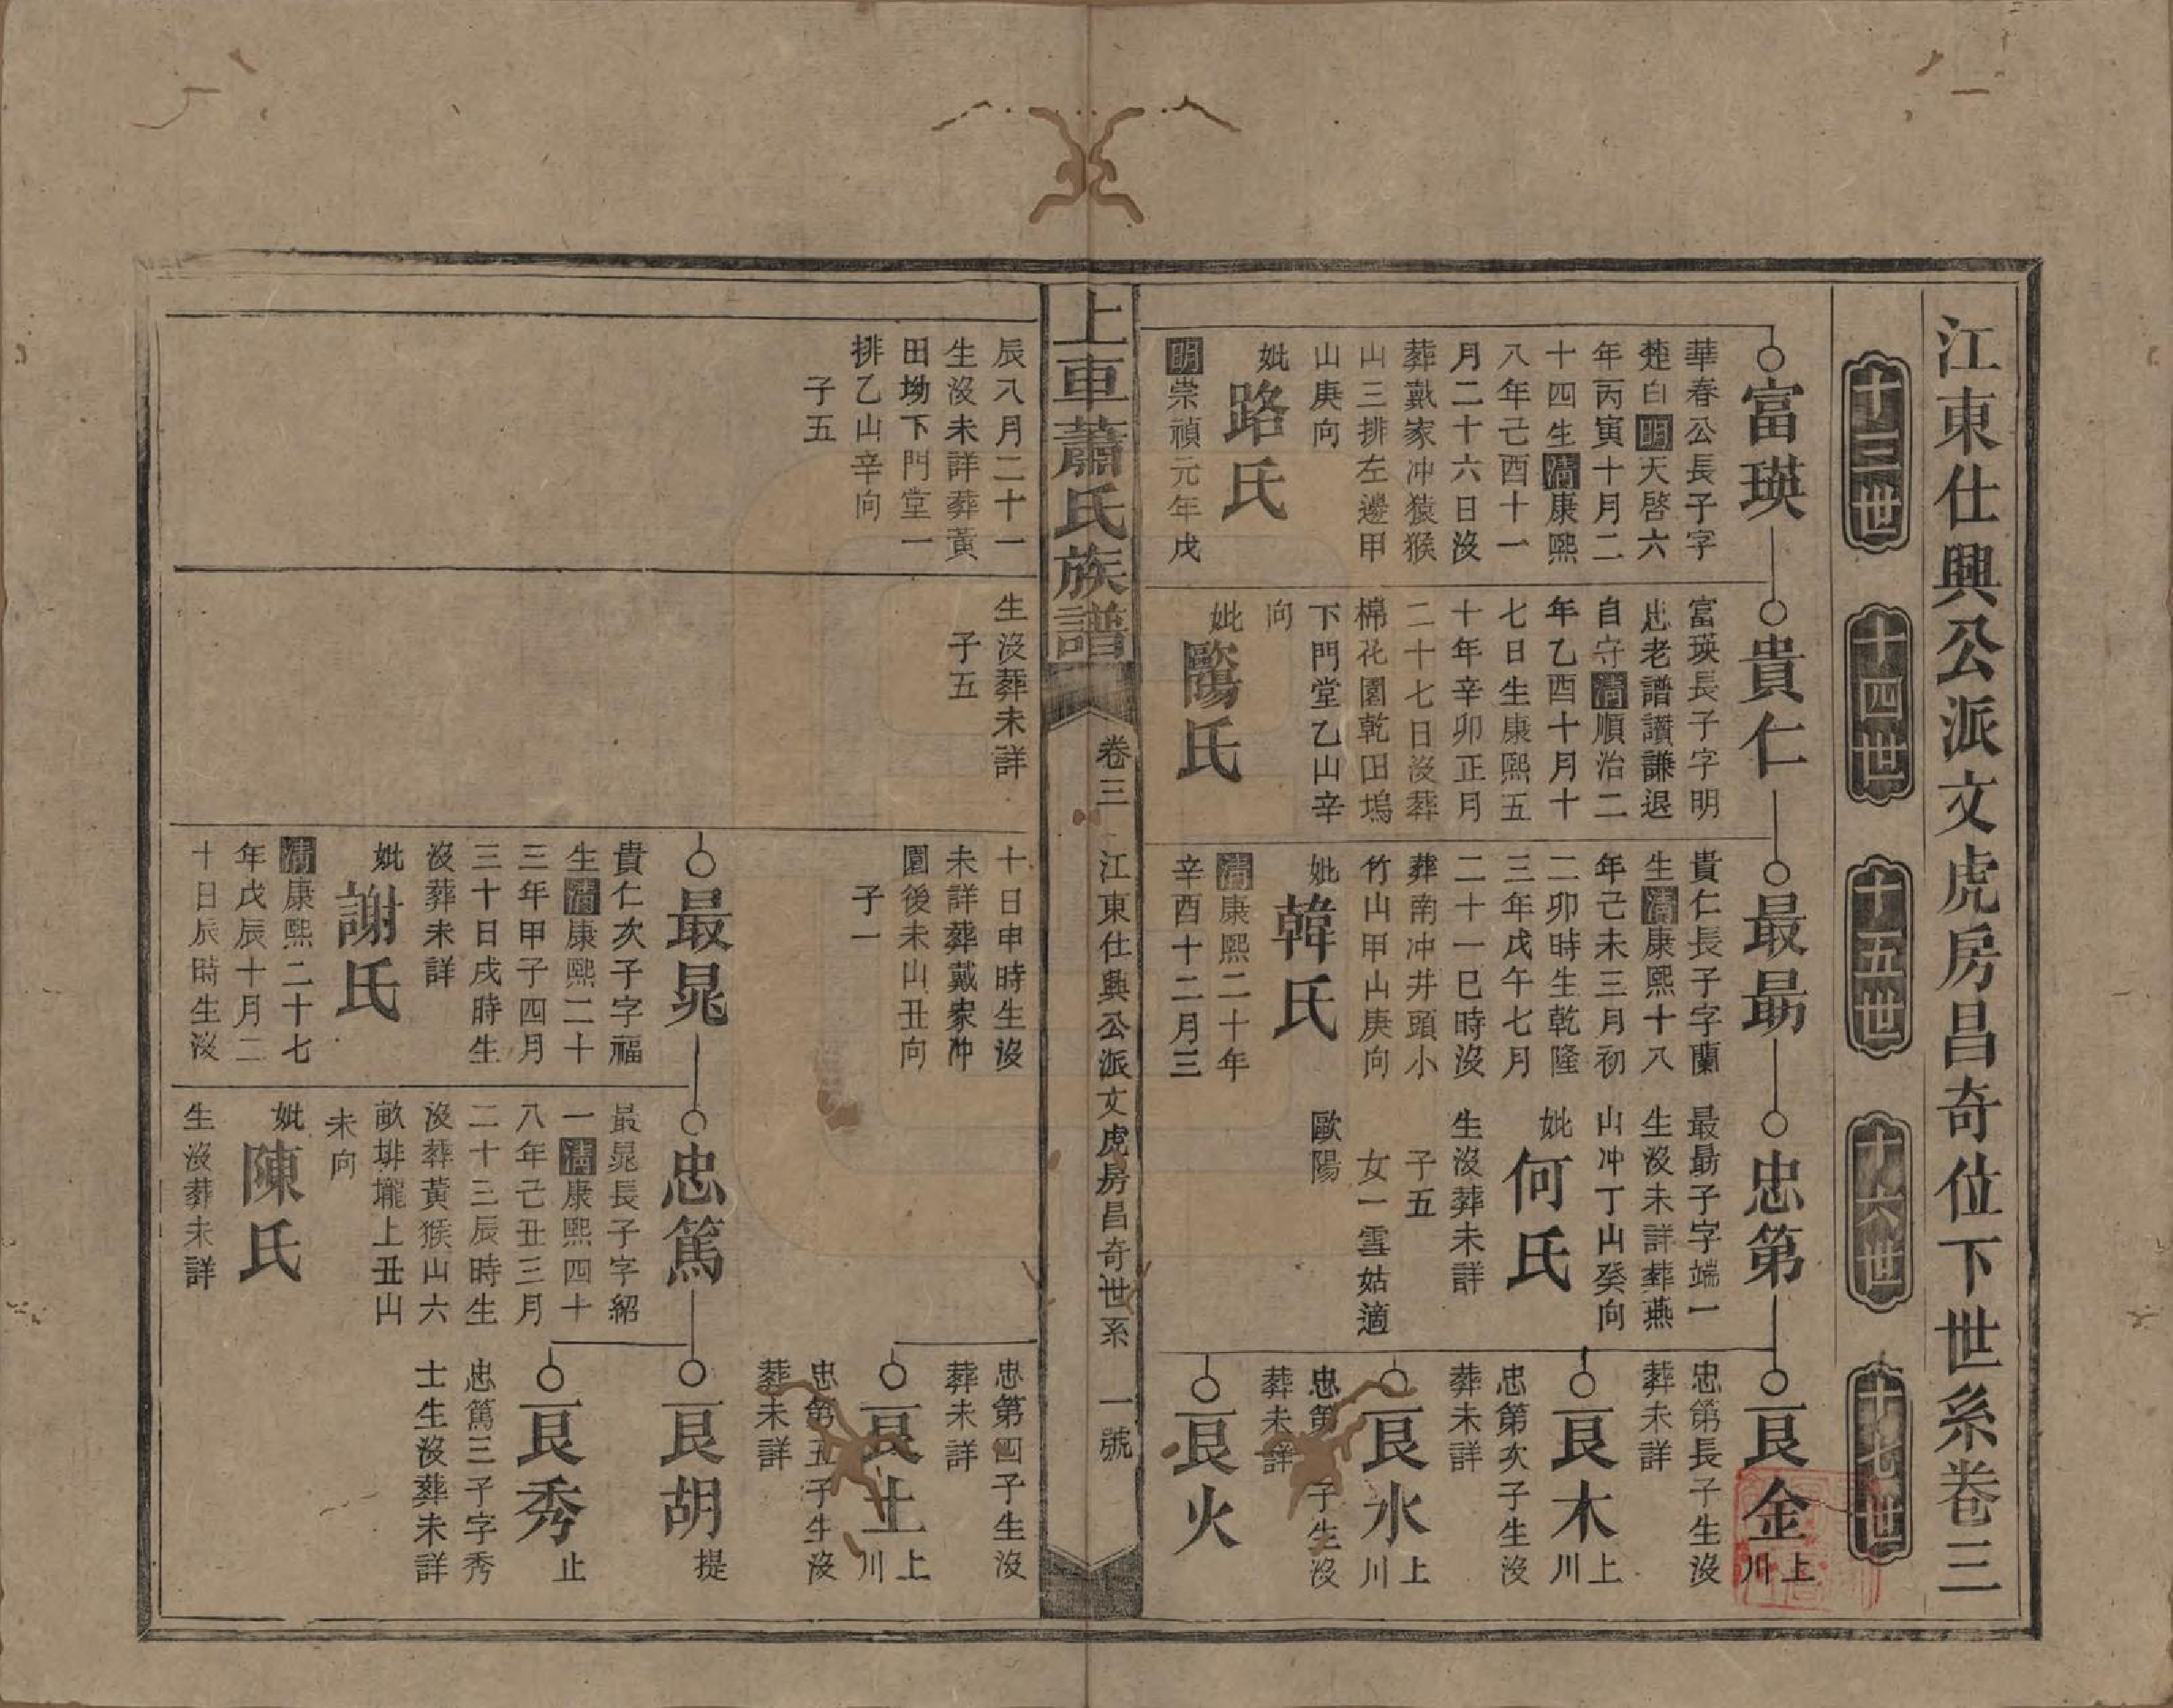 江東仕興公派文虎房昌奇位下世系卷三
十三世
十四世
十五世
十六世
十七世
富瑛
華春公長子字
楚白明天啓六
年丙寅十月二
十四生清康熙
八年己酉十一
月二十六日沒
葬戴家冲猿猴
山三排左邊甲
山庚向
妣路氏
明崇禎元年戊
貴仁
富瑛長子字明
忠老譜讚謙退
自守清順治二
年乙酉十月十
七日生康熙五
十年辛卯正月
二十七日沒葬
棉花園乾田塢
下門堂乙山辛
向
妣歐陽氏
最勗
貴仁長子字蘭
生清康熙十八
年己未三月初
二卯時生乾隆
三年戊午七月
二十一巳時沒
葬南冲井頭小
竹山甲山庚向
妣韓氏
清康熙二十年
辛酉十二月三
忠第
最勗子字端一
生沒未詳葬燕
山冲丁山癸向
妣何氏
生沒葬未詳
子五
女一雲姑適
歐陽
艮金上川
忠第長子生沒
葬未詳
艮木上川
忠第次子生沒
葬未詳
艮水上川
忠第子生沒
葬未詳
艮火
上車蕭氏族譜
卷三 江東仕興公派文虎房昌奇世系 一號
辰八月二十一
生沒未詳葬黃
田坳下門堂一
排乙山辛向
子五
生沒葬未詳
子五
十日申時生沒
未詳葬戴家冲
園後未山丑向
子一
最晁
貴仁次子字福
生清康熙二十
三年甲子四月
三十日戌時生
沒葬未詳
妣謝氏
清康熙二十七
年戊辰十月二
十日辰時生沒
忠篤
最晁長子字紹
一清康熙四十
八年己丑三月
二十三辰時生
沒葬黃猴山六
畝排壠上丑山
未向
妣陳氏
生沒葬未詳
忠第四子生沒
葬未詳
艮土上川
忠第五子生沒
葬未詳
艮胡提
艮秀止
忠篤三子字秀
士生沒葬未詳